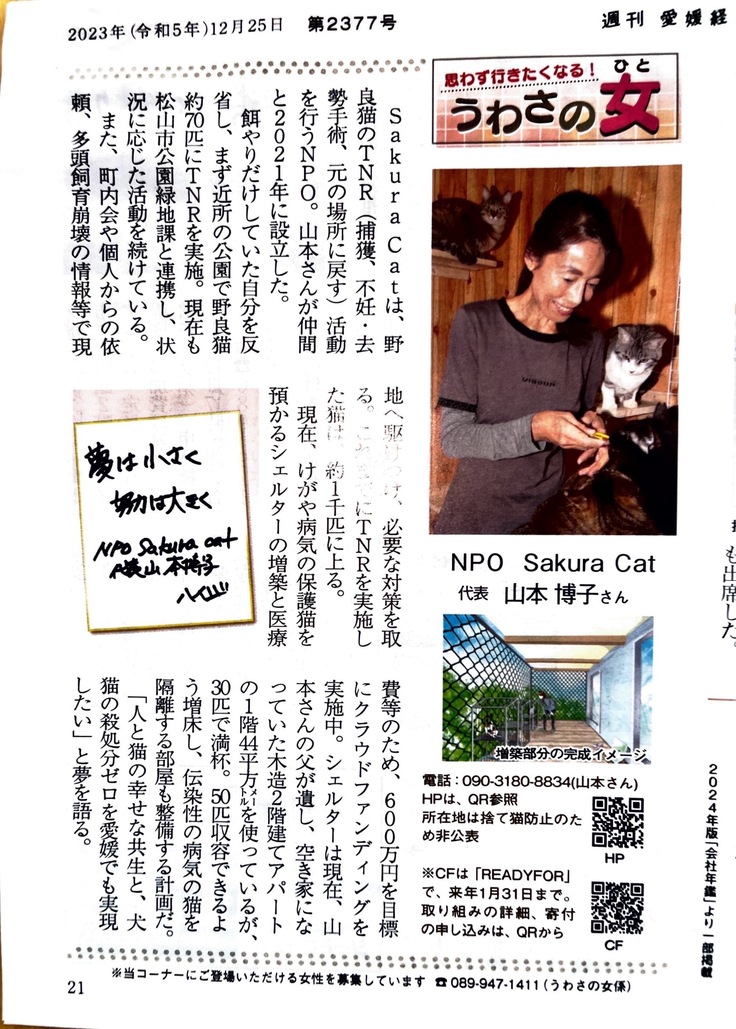 2023年(令和5年)12月25日 第2377号
週刊 愛媛経
思わず行きたくなる!
うわさの女
ひと
Sakura Catは、野
良猫のTNR(捕獲、不妊・去
勢手術、元の場所に戻す)活動
を行うNPO。山本さんが仲間
と2021年に設立した。
餌やりだけしていた自分を反
省し、まず近所の公園で野良猫
約70匹にTNRを実施。現在も
松山市公園緑地課と連携し、状
況に応じた活動を続けている。
また、町内会や個人からの依
頼、多頭飼育崩壊の情報等で現
地へ駆けつけ、必要な対策を取
る。これまでにTNRを実施し
た猫は、約1千匹に上る。
現在、けがや病気の保護猫を
預かるシェルターの増築と医療
費等のため、600万円を目標
にクラウドファンディングを
実施中。シェルターは現在、山
本さんの父が遺し、空き家にな
っていた木造2階建てアパート
の1階44平方メートルを使っているが、
30匹で満杯。50匹収容できるよ
う増床し、伝染性の病気の猫を
隔離する部屋も整備する計画だ。
「人と猫の幸せな共生と、犬
猫の殺処分ゼロを愛媛でも実現
したい」と夢を語る。
夢は小さく
努力は大きく
NPO Sakura cat
代表 山本博子
NPO Sakura Cat
代表 山本 博子さん
増築部分の完成イメージ
電話:090-3180-8834(山本さん)
HPは、QR参照
所在地は捨て猫防止のた
め非公表
HP
※CFは「READYFOR」
で、来年1月31日まで。
取り組みの詳細、寄付
の申し込みは、QRから
CF
※当コーナーにご登場いただける女性を募集しています ☎089-947-1411(うわさの女係)
21
も出席した。
2024年版「会社年鑑」より一部掲載